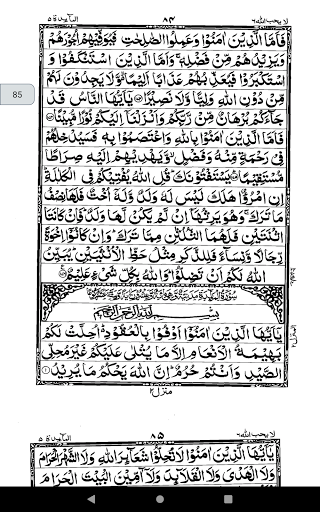 لا يحب الله ٦ ٨٤ المآئدة ٥
فَاَمَّا الَّذِيْنَ اٰمَنُوْا وَعَمِلُوا الصّٰلِحٰتِ فَيُوَفِّيْهِمْ اُجُوْرَهُمْ
وَيَزِيْدُهُمْ مِّنْ فَضْلِهٖ ۚ وَاَمَّا الَّذِيْنَ اسْتَنْكَفُوْا وَ
اسْتَكْبَرُوْا فَيُعَذِّبُهُمْ عَذَابًا اَلِيْمًا ۙ وَّلَا يَجِدُوْنَ لَهُمْ
مِّنْ دُوْنِ اللّٰهِ وَلِيًّا وَّلَا نَصِيْرًا ۝ يٰۤاَيُّهَا النَّاسُ قَدْ
جَآءَكُمْ بُرْهَانٌ مِّنْ رَّبِّكُمْ وَاَنْزَلْنَاۤ اِلَيْكُمْ نُوْرًا مُّبِيْنًا ۝
فَاَمَّا الَّذِيْنَ اٰمَنُوْا بِاللّٰهِ وَاعْتَصَمُوْا بِهٖ فَسَيُدْخِلُهُمْ
فِيْ رَحْمَةٍ مِّنْهُ وَفَضْلٍ ۙ وَّيَهْدِيْهِمْ اِلَيْهِ صِرَاطًا
85
مُّسْتَقِيْمًا ۝ يَسْتَفْتُوْنَكَ ؕ قُلِ اللّٰهُ يُفْتِيْكُمْ فِي الْكَلٰلَةِ ؕ
اِنِ امْرُؤٌا هَلَكَ لَيْسَ لَهٗ وَلَدٌ وَّلَهٗۤ اُخْتٌ فَلَهَا نِصْفُ
مَا تَرَكَ ۚ وَهُوَ يَرِثُهَاۤ اِنْ لَّمْ يَكُنْ لَّهَا وَلَدٌ ؕ فَاِنْ كَانَتَا
اثْنَتَيْنِ فَلَهُمَا الثُّلُثٰنِ مِمَّا تَرَكَ ؕ وَاِنْ كَانُوْۤا اِخْوَةً
رِّجَالًا وَّنِسَآءً فَلِلذَّكَرِ مِثْلُ حَظِّ الْاُنْثَيَيْنِ ؕ يُبَيِّنُ
اللّٰهُ لَكُمْ اَنْ تَضِلُّوْا ؕ وَاللّٰهُ بِكُلِّ شَيْءٍ عَلِيْمٌ ۝
بِسْمِ اللّٰهِ الرَّحْمٰنِ الرَّحِيْمِ
يٰۤاَيُّهَا الَّذِيْنَ اٰمَنُوْۤا اَوْفُوْا بِالْعُقُوْدِ ؕ اُحِلَّتْ لَكُمْ
بَهِيْمَةُ الْاَنْعَامِ اِلَّا مَا يُتْلٰى عَلَيْكُمْ غَيْرَ مُحِلِّي
الصَّيْدِ وَاَنْتُمْ حُرُمٌ ؕ اِنَّ اللّٰهَ يَحْكُمُ مَا يُرِيْدُ ۝
منزل ٢
لا يحب الله ٦ ٨٥ المآئدة ٥
يٰۤاَيُّهَا الَّذِيْنَ اٰمَنُوْا لَا تُحِلُّوْا شَعَآئِرَ اللّٰهِ وَلَا الشَّهْرَ الْحَرَامَ
وَلَا الْهَدْيَ وَلَا الْقَلَآئِدَ وَلَاۤ آٰمِّيْنَ الْبَيْتَ الْحَرَامَ